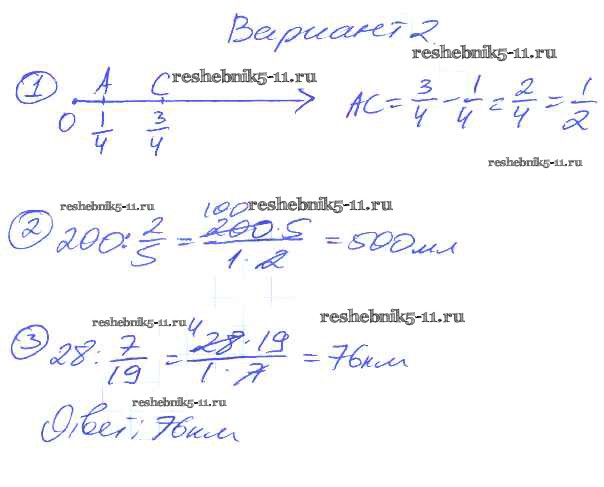 Вариант 2.
reshebnik5-11.ru
① A C reshebnik5-11.ru AC = 3/4 - 1/4 = 2/4 = 1/2
0 1/4 3/4
reshebnik5-11.ru
reshebnik5-11.ru reshebnik5-11.ru
② 200 : 2/5 = 100 200·5/1·2 = 500 мл
reshebnik5-11.ru reshebnik5-11.ru
③ 28 : 7/19 = 4 28·19/1·7 = 76 км
reshebnik5-11.ru
Ответ: 76 км